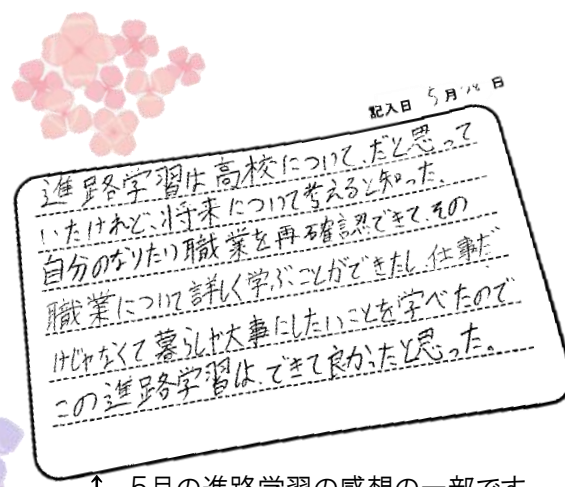 記入日 5月18日
進路学習は高校について、だと思って
いたけれど、将来について考えると知った。
自分のなりたい職業を再確認できて、その
職業について詳しく学ぶことができたし、仕事だ
けじゃなくて暮らしや大事にしたいことを学べたので
この進路学習は、できて良かったと思った。
↑ 5月の進路学習の感想の一部です